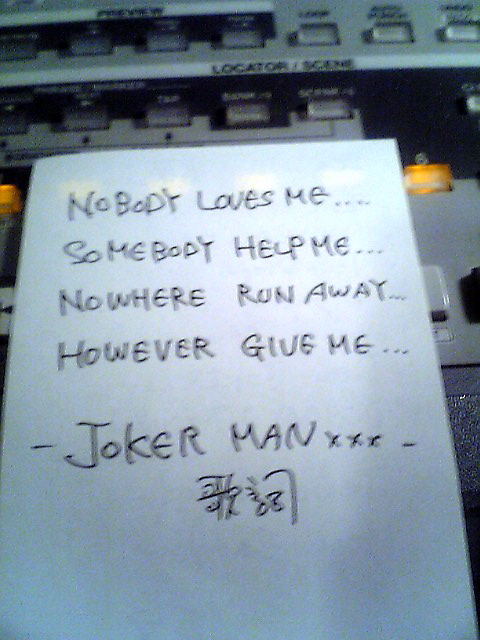 PREVIEW
LOOP
LOCATOR / SCENE
NOBODY LOVES ME....
SOMEBODY HELP ME...
NOWHERE RUN AWAY...
HOWEVER GIVE ME...
- JOKER MAN xxx -
歌詞